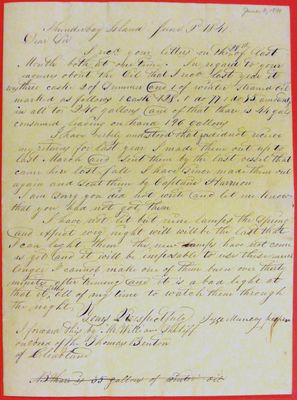 June 3, 1841
Thunderbay Island June 3 1841
Dear Sir
I recd your letters in the of last
Month both at one time. In regard to your
inquires about the Oil that I recd last year it
was three casks 2 of Summer and 1 of winter Strand oil
marked as follows 1 Cask 1 do 77 1 do 83 amount
in all to 241 gallons and of that there is 44 gals
consumed leaving on hand 196 Gallons
I have lately understood that you did not receive
my returns for last year. I made them out up to
last March and Sent them by the last vessel that
came here last fall. I have since made them out
again and Sent them by Captain Harrison
I am sorry you did not write and let me know
that you had not got them
I have not lit but nine lamps the Spring
and expect every night will be the last that
I can light them the new lamps have not come
as yet and it will be imposable to use these
longer I cannot make one of them burn over thirty
minuts after triming and it is a bad light at
that it all of my time to watch them through
the night,
Yours Respectfully Jesse Muncey keeper
I forward this by Mr William
on board of the Thomas Benton
of Cleveland
NB there is 55 gallons of winter oil